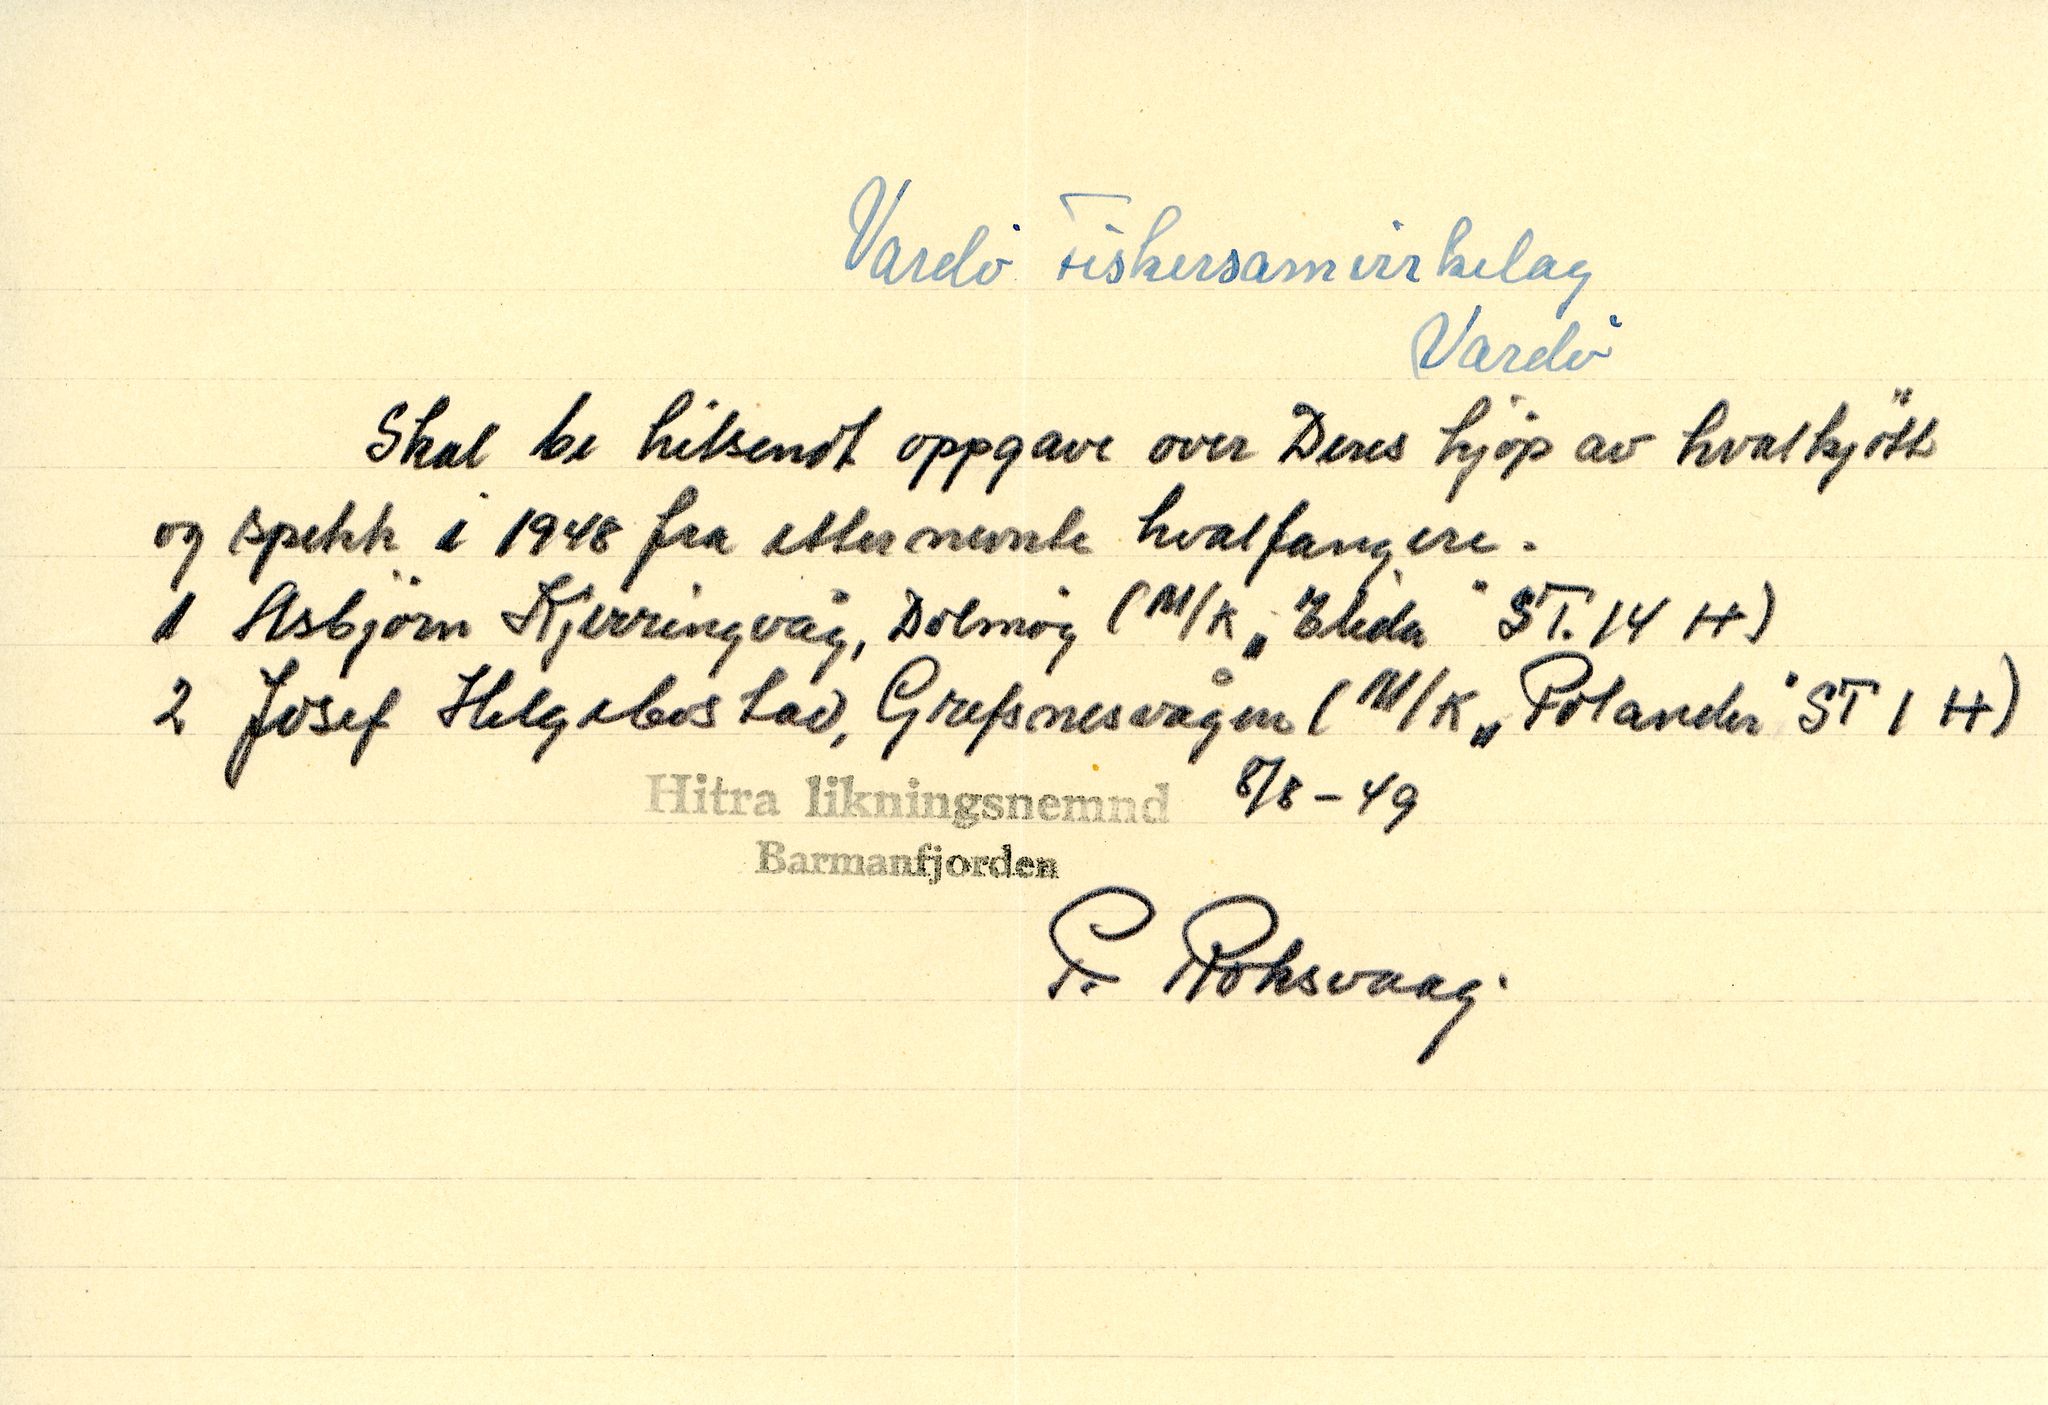 Vardö Fiskersamvirkelag
Vardö
Skal be hitsendt oppgave over Deres kjöp av hvalkjött
og spekk i 1948 fra etternevnte hvalfangere.
1 Asbjörn Kjerringvåg, Dolmöy (M/K „Elida" ST. 14 H)
2 Josef Helgebostad, Grefsnesvågen (M/K „Polander" ST 1 H)
Hitra likningsnemnd 8/8-49
Barmanfjorden
P. Roksvaag.